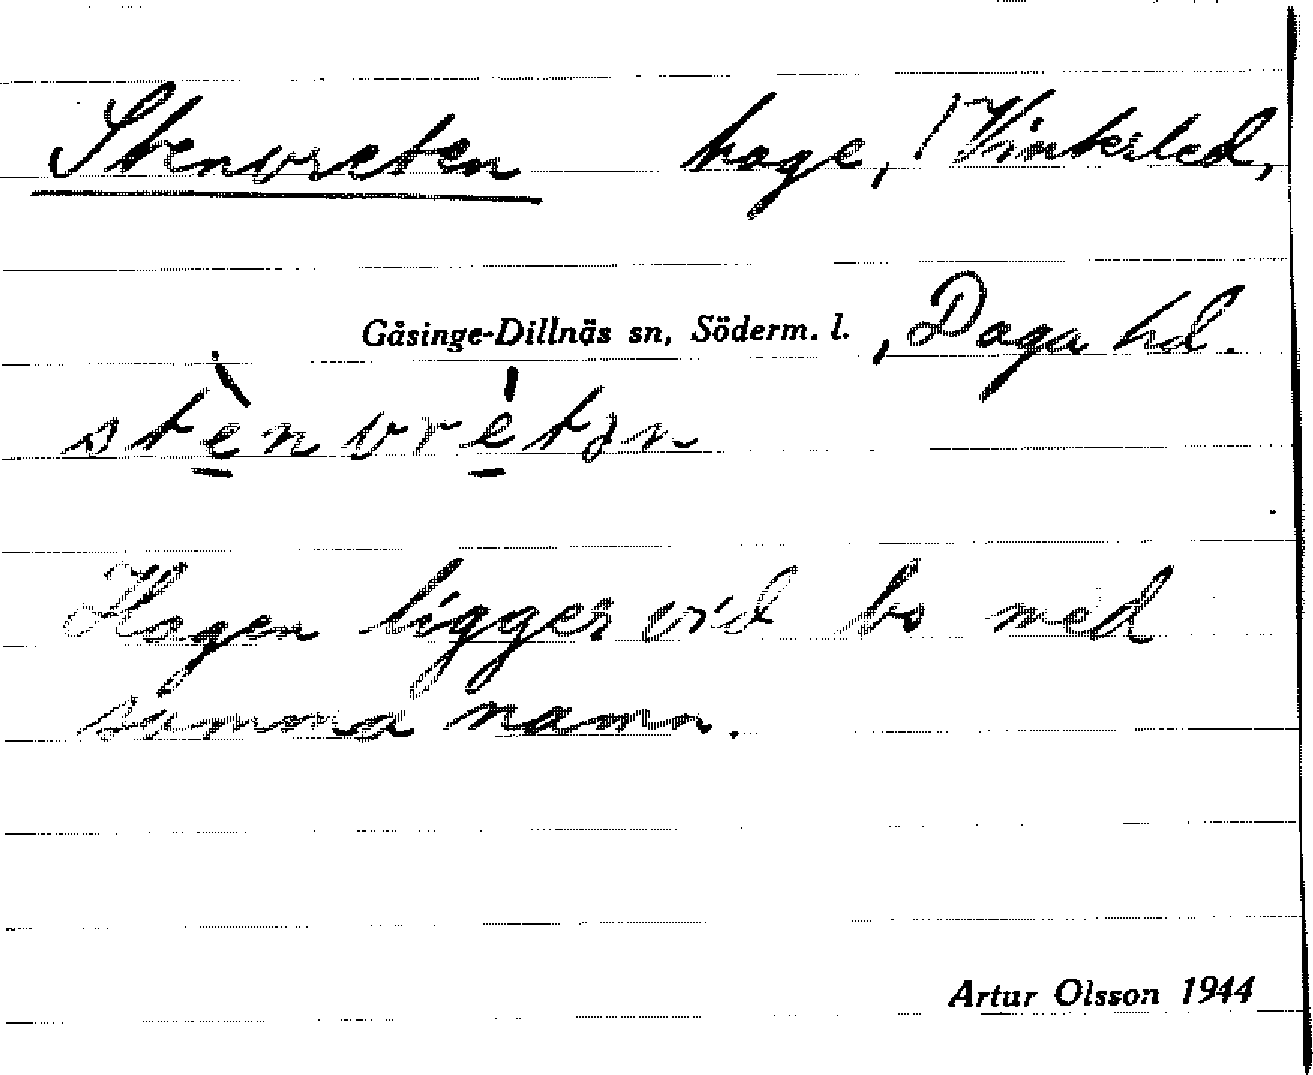 Stenvreten hage, Vinkerled,
Gåsinge-Dillnäs sn, Söderm. l., Daga hd.
stènvrétən
Hagen ligger vid bs med
samma namn.
Artur Olsson 1944